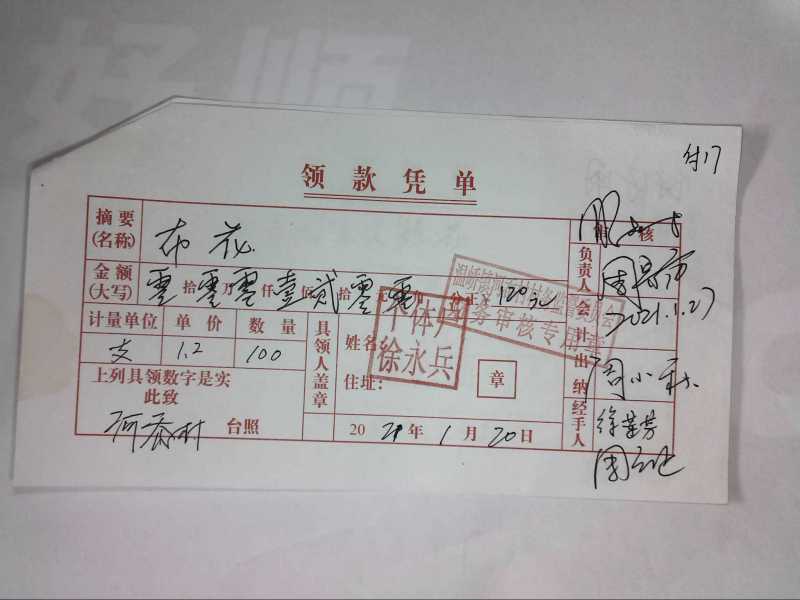 好顺
付17
领款凭单
摘要(名称) 布花 审核
金额(大写) 零拾零万零仟壹佰贰拾零元零角 分正 ¥120元
计量单位 单价 数量
支 1.2 100
上列具领数字是实
此致
台照
具领人盖章
姓名:
住址:
章
个体户
徐永兵
务审核专用章
2021年1月20日
负责人
会计 2021.1.27
出纳 周小秋
经手人 徐莲芳